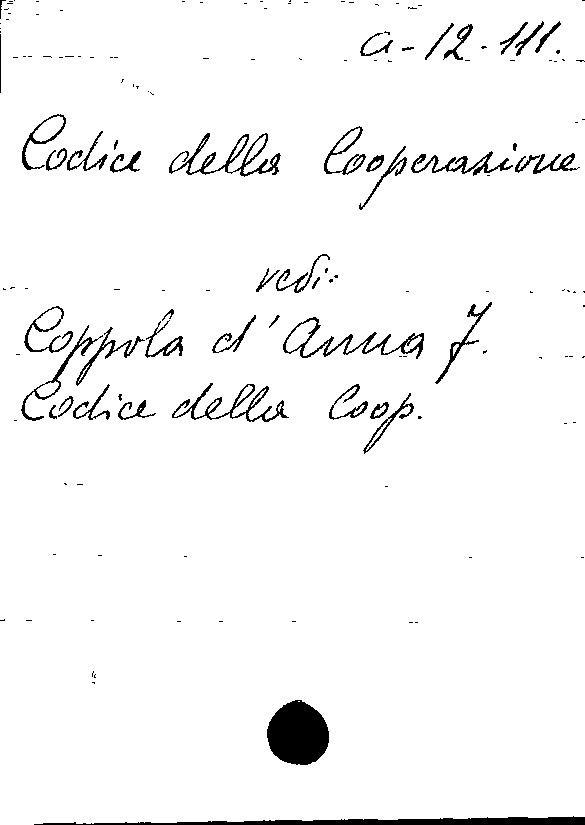 a-12-111.
Codice della Cooperazione
vedi:
Coppola d'Anna F.
Codice della Coop.